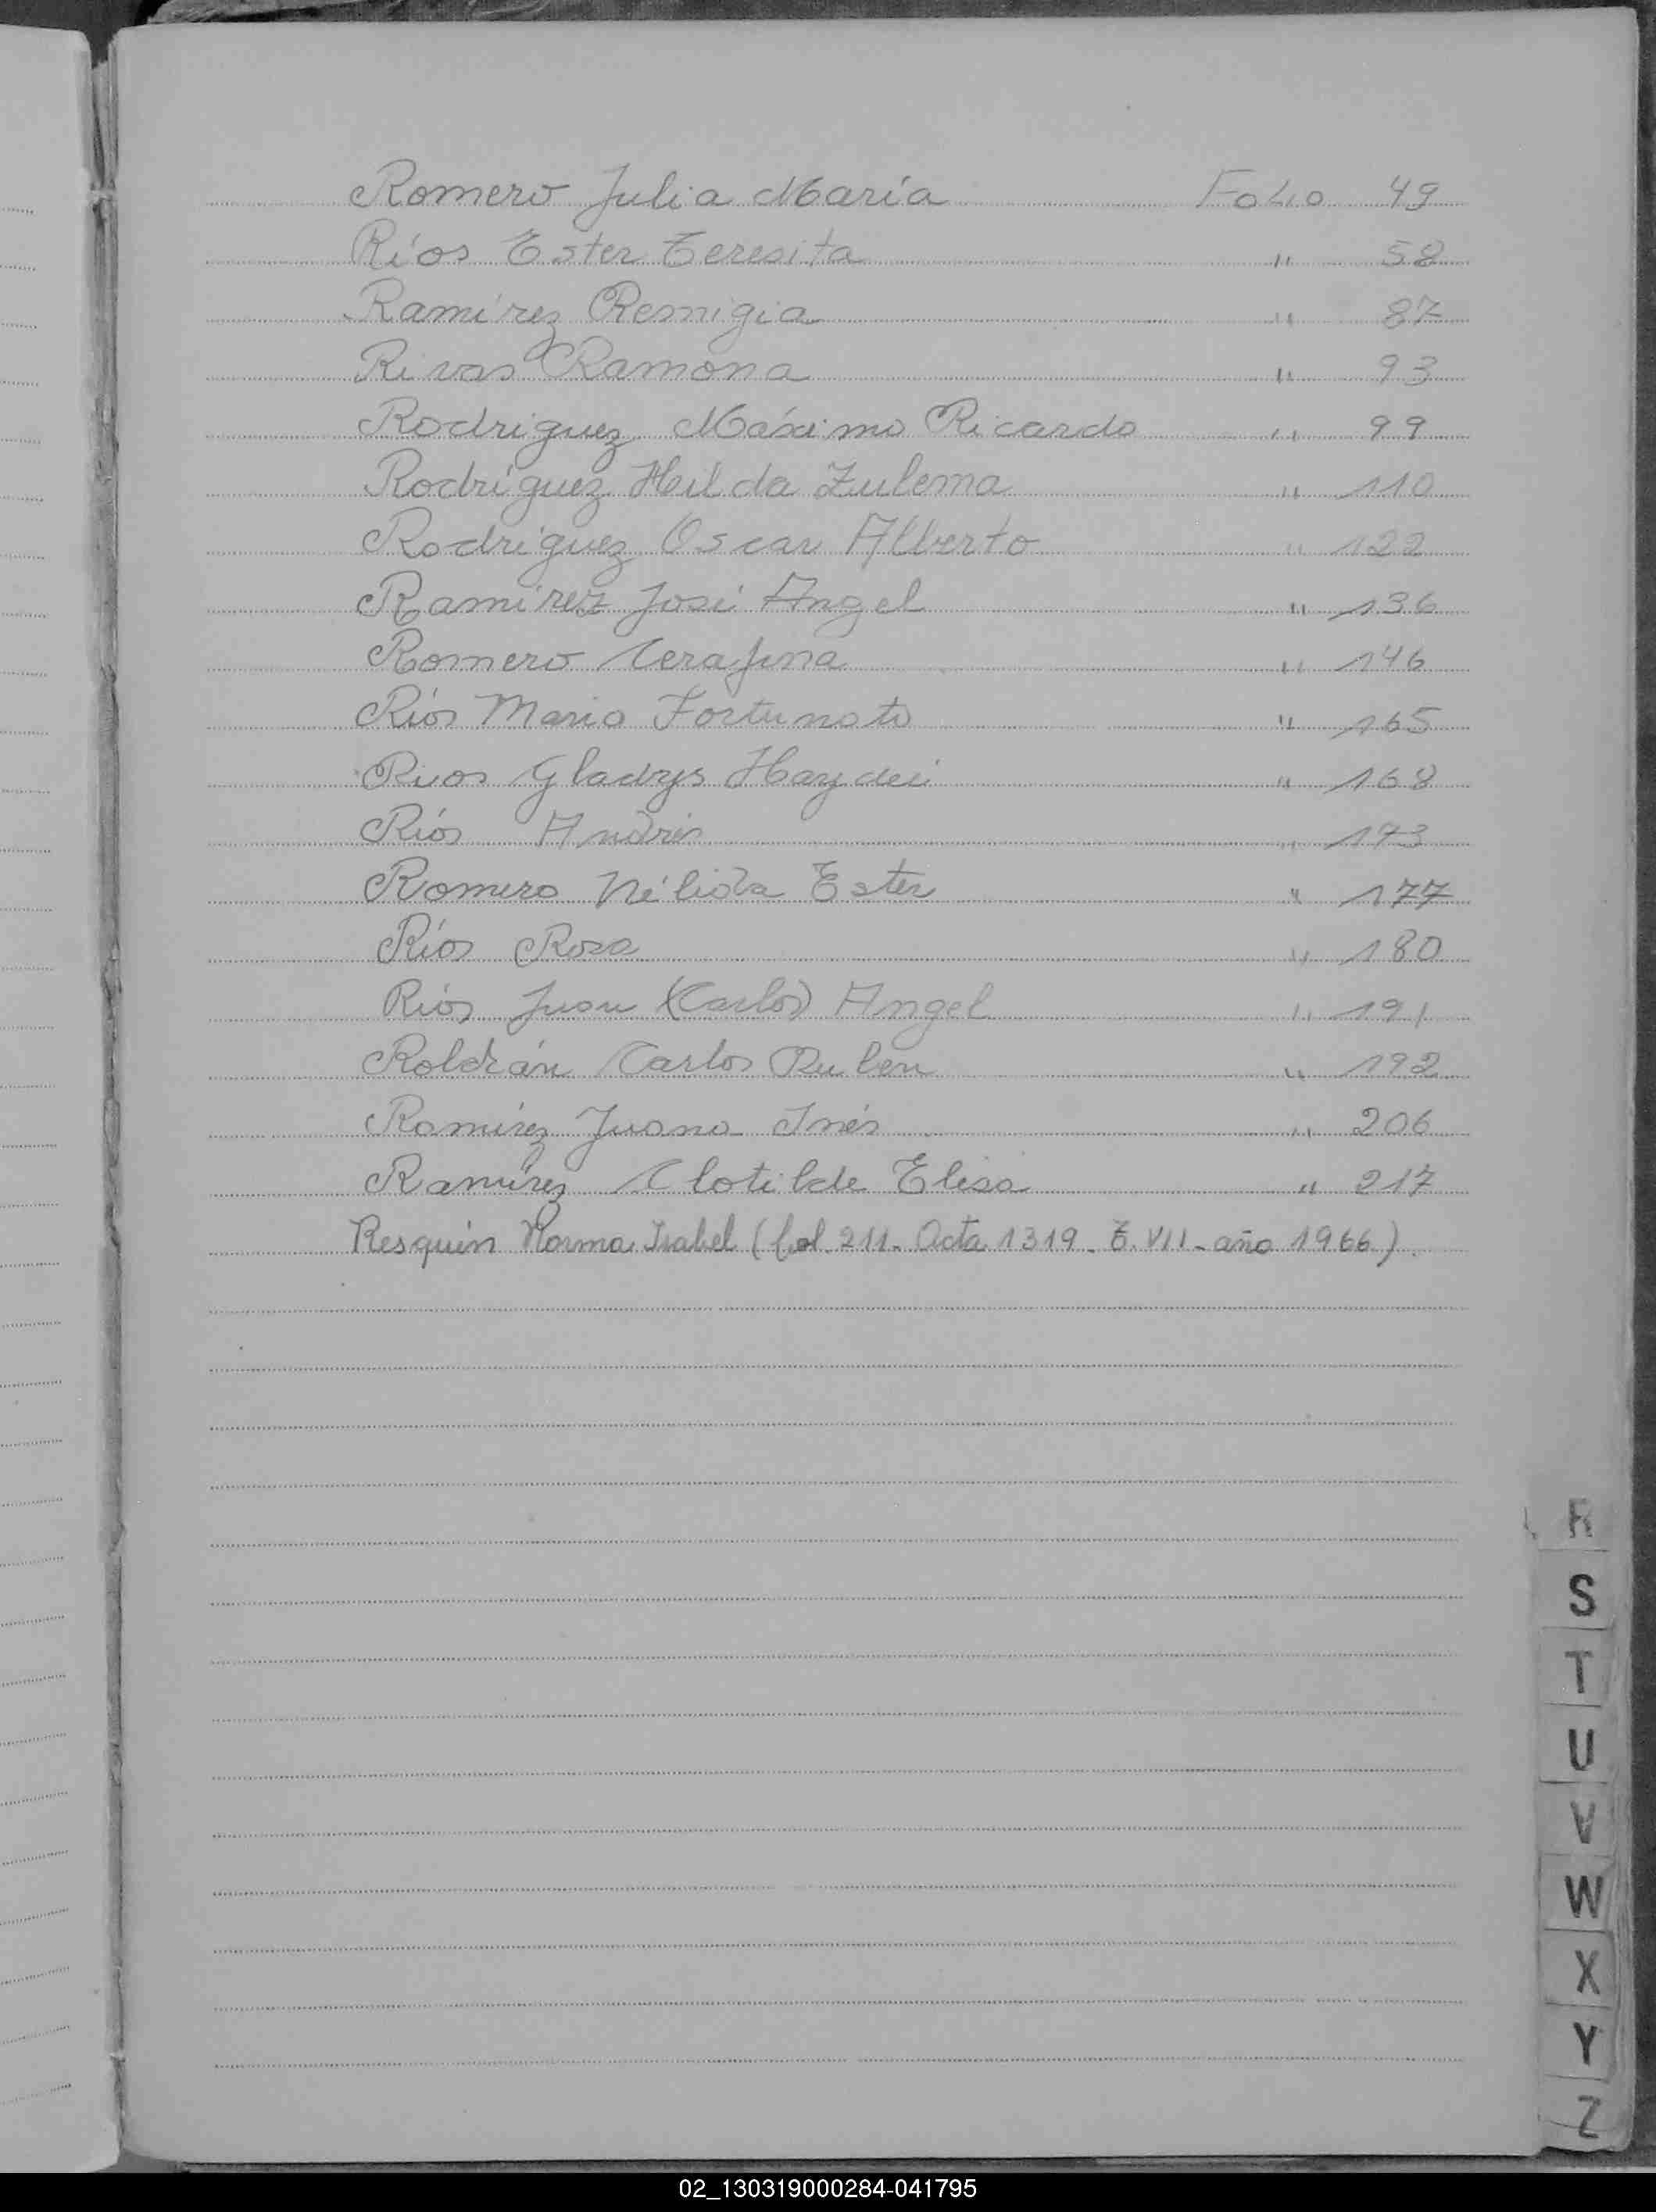 Romero Julia María Folio 49
Ríos Ester Teresita " 58
Ramírez Remigia " 87
Rivas Ramona " 93
Rodriguez Máximo Ricardo " 99
Rodríguez Hilda Zulema " 110
Rodriguez Oscar Alberto " 122
Ramirez José Angel " 136
Romero Cerafina " 146
Ríos Mario Fortunato " 165
Rios Gladys Haydeé " 168
Ríos Andrés " 173
Romero Nélida Ester " 177
Ríos Rosa " 180
Ríos Juan (Carlos) Angel " 191
Roldán Carlos Ruben " 192
Ramírez Juana Inés " 206
Ramírez Clotilde Elisa " 217
Resquín Norma Isabel (fol. 211. Acta 1319. T. VII - año 1966)
R
S
T
U
V
W
X
Y
Z
02_130319000284-041795